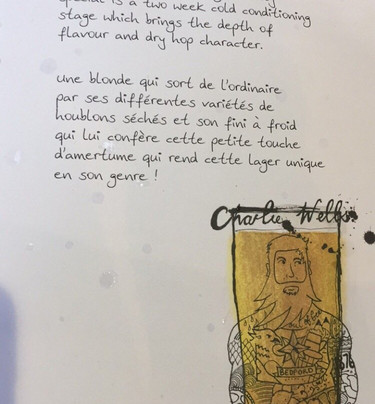 special is a two week cold conditioning
stage which brings the depth of
flavour and dry hop character.
une blonde qui sort de l'ordinaire
par ses différentes variétés de
houblons séchés et son fini à froid
qui lui confère cette petite touche
d'amertume qui rend cette lager unique
en son genre !
Charlie Wells
BEDFORD